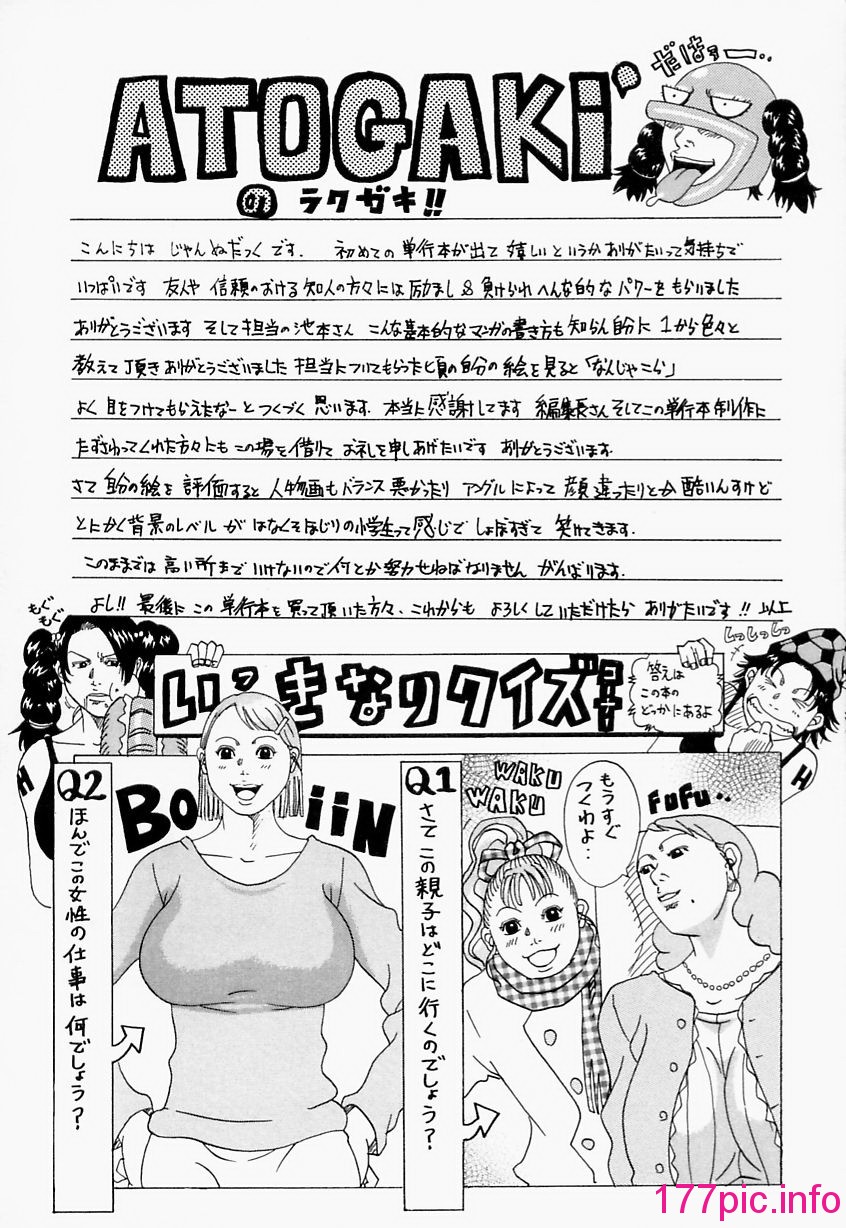 だはァー‥
ATOGAKi
の
ラクガキ!!
こんにちは じゃんぬだっく です. 初めての 単行本が出て 嬉しいというか ありがたいって気持ちで
いっぱいです 友人や 信頼のおける知人の方々には 励まし & 負けられへんな的な パワーをもらいました
ありがとうございます そして担当の池本さん こんな基本的なマンガの書き方も 知らん自分に 1から色々と
教えて頂きありがとうございました 担当についてもらった頃の自分の絵を見ると「なんじゃこら」
よく目をつけてもらえたなーと つくづく 思います. 本当に感謝してます 編集長さん そしてこの単行本制作に
たずさわってくれた方々にも この場を借りて お礼を申しあげたいです ありがとうございます.
さて 自分の絵を 評価すると 人物画もバランス悪かったり アングルによって 顔違ったりとか 酷いんすけど
とにかく背景のレベル が はなくそほじりの小学生って感じで しょぼすぎて 笑けてきます.
このままでは 高い所まで いけないので何とか努力せねばなりません がんばります.
よし!! 最後に この 単行本を 買って頂いた方々、これからも よろしくしていただけたら ありがたいです!! 以上
もぐもぐ
しっしっしっ
いきなりクイズ
コーナー
答えは
この本の
どっかにあるよ
Q1
さて この親子はどこに行くのでしょう?
WAKU
WAKU
もうすぐ
つくわよ‥
FuFu‥
Q2
ほんでこの女性の仕事は何でしょう?
BO iiN
H
H
177pic.info